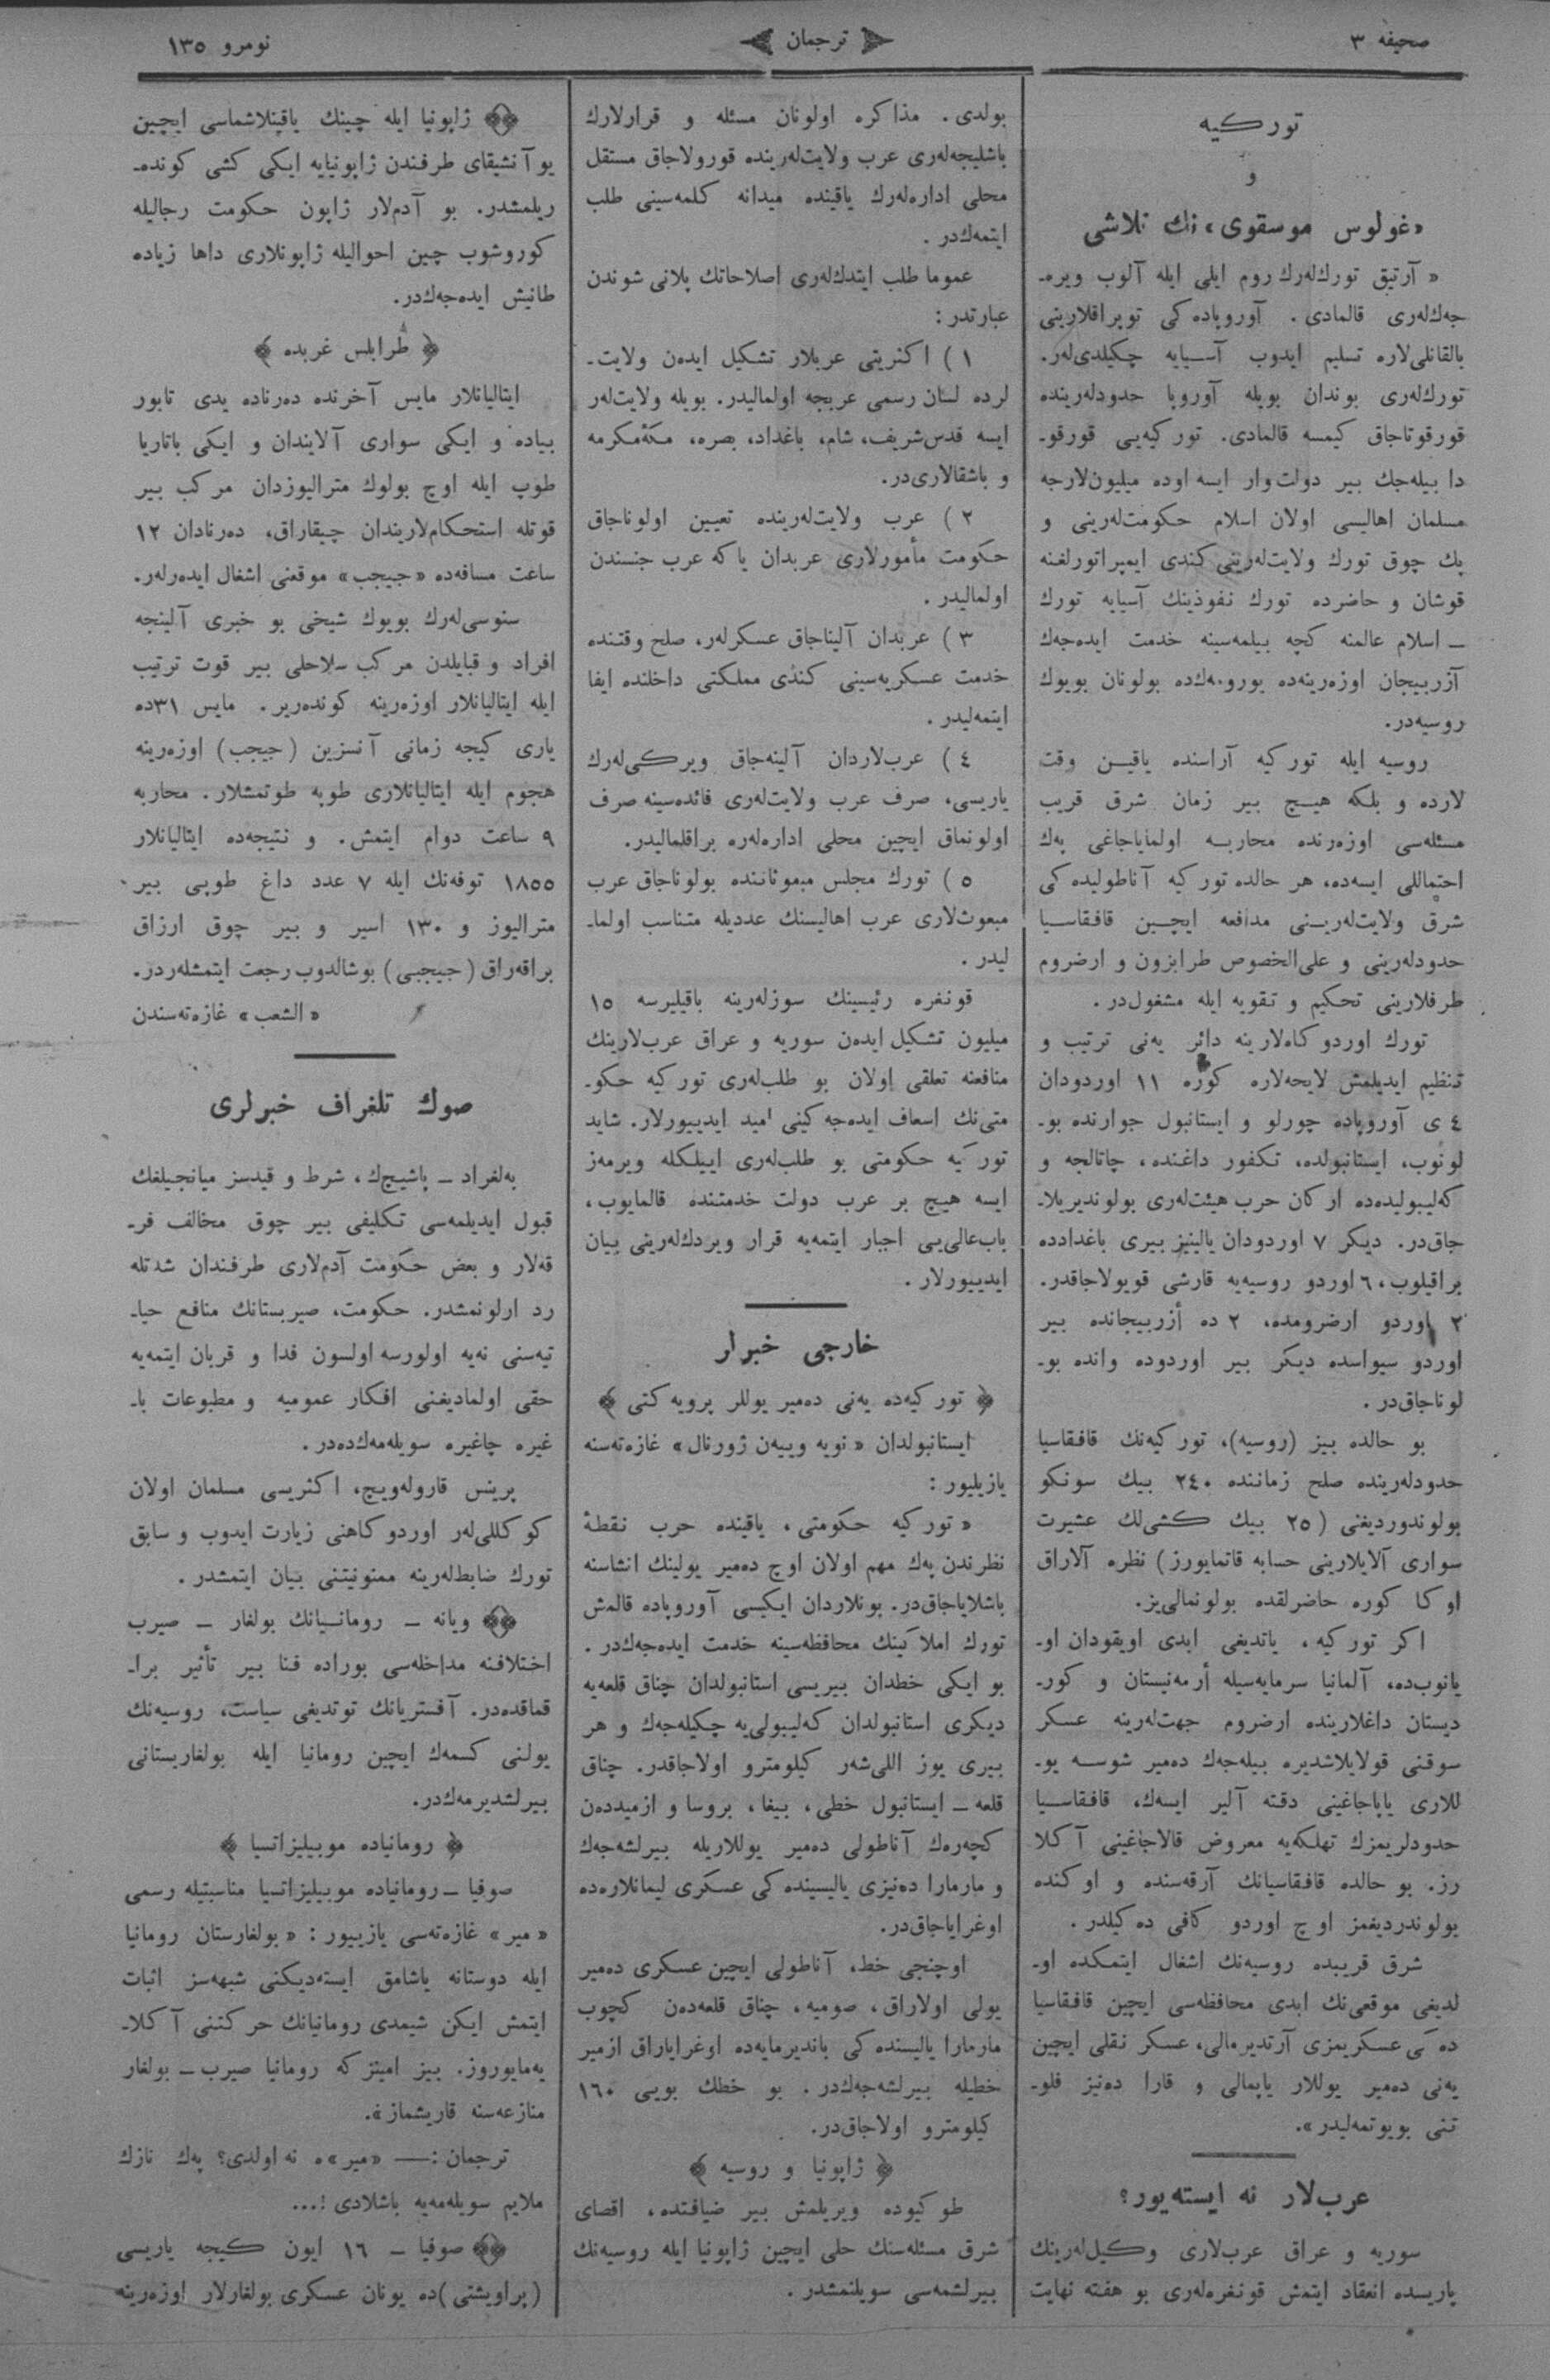 صحیفه ۳
ترجمان
نومرو ۱۳۵
تورکیه
و
«غولوس موسقوی» نك تلاشی
« آرتیق تورك‌لەرك روم ایلی ایله آلوب ویره‌ـ
جەك‌لەری قالمادی. آوروپاده‌كی توپراقلارینی
بالقانلی‌لاره تسلیم ایدوب آسـیایه چكیلدی‌لەر.
تورك‌لەری بوندان بویله آوروپا حدودلەرینده
قورقوتاجاق كیمسه قالمادی. توركیه‌یی قورقوـ
دا بیلەجك بیر دولت وار ایسه اوده میلیون‌لارجه
مسلمان اهالیسی اولان اسلام حكومت‌لەرینی و
پك چوق تورك ولایت‌لەرینی كندی ایمپراتورلغنه
قوشان و حاضرده تورك نفوذینك آسیایه تورك
ـ اسلام عالمنه كچه بیلمه‌سینه خدمت ایده‌جەك
آزربیجان اوزه‌رینه‌ده یورومەك‌ده بولونان بویوك
روسیه‌در.
روسیه ایله توركیه آراسنده یاقیـن وقت
لارده و بلكه هیـچ بیر زمان شرق قریب
مسئله‌سی اوزه‌رنده محاربـه اولمایاجاغی پەك
احتماللی ایسه‌ده، هر حالده توركیه آناطولیده‌كی
شرق ولایت‌لەریـنی مدافعه ایچـین قافـقاسـیا
حدودلەرینی و علی‌الخصوص طرابزون و ارضروم
طرفلارینی تحكیم و تـقویه ایله مشغول‌در.
تورك اوردوكاه‌لارینه دائر یەنی ترتیب و
تنظیم ایدیلمش لایحه‌لاره كوره ۱۱ اوردودان
٤ ی آوروپاده چورلو و ایستانبول جوارنده بوـ
لونوب، ایستانبولده، تكفور داغنده، چاتالجه و
كەلیبولیده‌ده اركان حرب هیئت‌لەری بولوندیریلاـ
جاق‌در. دیكر ۷ اوردودان یالینیز بیری باغدادده
براقیلوب، ٦ اوردو روسیه‌یه قارشی قویولاجاقدر.
۲ اوردو ارضرومده، ۲ ده أزربیجانده بیر
اوردو سیواسده دیكر بیر اوردوده وانده بوـ
لوناجاق‌در.
بو حالده بیز (روسیه)، توركیه‌نك قافـقاسیا
حدودلەرینده صلح زماننده ۲٤۰ بیك سونكو
بولوندوردیغنی (۲۵ بیك كشی‌لك عشیرت
سواری آلایلارینی حسابه قاتمایورز) نظره آلاراق
اوكا كوره حاضرلقده بولونمالی‌یز.
اكر توركیه، یاتدیغی ابدی اویقودان اوـ
یانوب‌ده، آلمانیا سرمایه‌سیله أرمه‌نیستان و كورـ
دیستان داغلارینده ارضروم جهت‌لەرینه عسكر
سوقنی قولایلاشدیره بیله‌جەك ده‌میر شوسـه یوـ
للاری یاپاجاغینی دقته آلیر ایسەك، قافـقاسـیا
حدودلریمزك تهلكه‌یه معروض قالاجاغینی آكلا
رز. بو حالده قافـقاسیانك آرقه‌سنده و اوكنده
بولوندردیغمز اوچ اوردو كافی ده‌كیلدر.
شرق قریبده روسیه‌نك اشغال ایتمكده اوـ
لدیغی موقعی‌نك ابدی محافظه‌سی ایچین قافـقاسیا
ده‌كی عسكریمزی آرتدیرمالی، عسكر نقلی ایچین
یەنی ده‌میر یوللار یاپمالی و قارا ده‌نیز فلوـ
تنی بویوتمه‌لیدر».
عرب‌لار نه ایسته‌یور؟
سوریه و عراق عرب‌لاری وكیل‌لەرینك
پاریسده انعقاد ایتمش قونغره‌لەری بو هفته نهایت
بولدی. مذاكره اولونان مسئله و قرارلارك
باشلیجه‌لەری عرب ولایت‌لەرینده قورولاجاق مستقل
محلی اداره‌لەرك یاقینده میدانه كلمه‌سینی طلب
ایتمەك‌در.
عموما طلب ایتدك‌لەری اصلاحاتك پلانی شوندن
عبارتدر:
۱) اكثریتی عربلار تشكیل ایده‌ن ولایت‌ـ
لرده لسان رسمی عربجه اولمالیدر. بویله ولایت‌لەر
ایسه قدس‌شریف، شام، باغداد، بصره، مكۀ‌مكرمه
و باشقالاری‌در.
۲) عرب ولایت‌لەرینده تعیین اولوناجاق
حكومت مأمورلاری عربدان یاكه عرب جنسندن
اولمالیدر.
۳) عربدان آلیناجاق عسكرلەر، صلح وقتـنده
خدمت عسكریه‌سینی كندی مملكتی داخلنده ایفا
ایتمه‌لیدر.
٤) عرب‌لاردان آلینه‌جاق ویركی‌لەرك
یاریسی، صرف عرب ولایت‌لەری فائده‌سینه صرف
اولونماق ایچین محلی اداره‌لەره براقلمالیدر.
٥) تورك مجلس مبعوثاننده بولوناجاق عرب
مبعوث‌لاری عرب اهالیسنك عددیله متناسب اولماـ
لیدر.
قونغره رئیسینك سوزلەرینه باقیلیرسه ۱٥
میلیون تشكیل ایده‌ن سوریه و عراق عرب‌لارینك
منافعنه تعلقی اولان بو طلب‌لەری توركیه حكوـ
متی‌نك اسعاف ایده‌جەكینی امید ایدییورلار. شاید
توركیه حكومتی بو طلب‌لەری اییلكله ویرمه‌ز
ایسه هیچ بر عرب دولت خدمتنده قالمایوب،
باب‌عالی‌یی اجبار ایتمه‌یه قرار ویردك‌لەرینی بیان
ایدییورلار.
خارجی خبرلر
﴿ توركیه‌ده یەنی ده‌میر یوللر پرویه‌كتی ﴾
ایستانبولدان «نویه وییەن ژورنال» غازه‌ته‌سنه
یازیلیور:
« توركیه حكومتی، یاقینده حرب نقطۀ
نظرندن پەك مهم اولان اوچ ده‌میر یولینك انشاسنه
باشلایاجاق‌در. بونلاردان ایكیسی آوروپاده قالمش
تورك املاكینك محافظه‌سینه خدمت ایده‌جەك‌در.
بو ایكی خطدان بیریسی استانبولدان چناق قلعه‌یه
دیكری استانبولدان كەلیبولی‌یه چكیله‌جەك و هر
بیری یوز اللی‌شەر كیلومترو اولاجاقدر. چناق
قلعه ـ ایستانبول خطی، بیغا، بروسا و ازمیدده‌ن
كچه‌رەك آناطولی ده‌میر یوللاریله بیرلشه‌جەك
و مارمارا ده‌نیزی یالیسینده‌كی عسكری لیمانلاره‌ده
اوغرایاجاق‌در.
اوچنجی خط، آناطولی ایچین عسكری ده‌میر
یولی اولاراق، صومیه، چناق قلعه‌ده‌ن كچوب
مارمارا یالیسنده‌كی باندیرمایه‌ده اوغرایاراق ازمیر
خطیله بیرلشه‌جەك‌در. بو خطك بویی ۱٦۰
كیلومترو اولاجاق‌در.
﴿ ژاپونیا و روسیه ﴾
طوكیوده ویریلمش بیر ضیافتده، اقصای
شرق مسئله‌سنك حلی ایچین ژاپونیا ایله روسیه‌نك
بیرلشمه‌سی سویلنمشدر.
ژاپونیا ایله چینك یاقینلاشماسی ایچین
یوآنشیقای طرفندن ژاپونیایه ایكی كشی كونده‌ـ
ریلمشدر. بو آدم‌لار ژاپون حكومت رجالیله
كوروشوب چین احوالیله ژاپونلاری داها زیاده
طانیش ایده‌جەك‌در.
﴿ طرابلس غربده ﴾
ایتالیانلار مایس آخرنده ده‌رناده یدی تابور
پیاده و ایكی سواری آلایندان و ایكی باتاریا
طوپ ایله اوچ بولوك مترالیوزدان مركب بیر
قوتله استحكام‌لاریندان چیقاراق، ده‌رنادان ۱۲
ساعت مسافه‌ده «جیجب» موقعنی اشغال ایده‌رلەر.
سنوسی‌لەرك بویوك شیخی بو خبری آلینجه
افراد و قبایلدن مركب سلاحلی بیر قوت ترتیب
ایله ایتالیانلار اوزه‌رینه كونده‌ریر. مایس ۳۱ده
یاری كیجه زمانی آنسزین (جیجب) اوزه‌رینه
هجوم ایله ایتالیانلاری طوپه طوتمشلار. محاربه
۹ ساعت دوام ایتمش. و نتیجه‌ده ایتالیانلار
۱۸٥٥ توفەنك ایله ۷ عدد داغ طوپی بیر
مترالیوز و ۱۳۰ اسیر و بیر چوق ارزاق
براقه‌راق (جیجبی) بوشالدوب رجعت ایتمشلەردر.
«الشعب» غازه‌ته‌سندن
صوك تلغراف خبرلری
بەلغراد ـ پاشیچ‌ك، شرط و قیدسز میانجیلغك
قبول ایدیلمه‌سی تكلیفی بیر چوق مخالف فرـ
قه‌لار و بعض حكومت آدم‌لاری طرفـندان شدتله
رد ارلونمشدر. حكومت، صیربستانك منافع حیاـ
تیه‌سنی نەیه اولورسه اولسون فدا و قربان ایتمه‌یه
حقی اولمادیغنی افكار عمومیه و مطبوعات باـ
غیره چاغیره سویله‌مەك‌ده‌در.
پرینس قارولەویچ، اكثریسی مسلمان اولان
كوكللی‌لەر اوردوكاهنی زیارت ایدوب و سابق
تورك ضابط‌لەرینه ممنونیتنی بیان ایتمشدر.
ویانه ـ رومانـیانك بولغار ـ صیرب
اختلافنه مداخله‌سی بوراده فنا بیر تأثیر براـ
قماقده‌در. آفستریانك توتدیغی سیاست، روسیه‌نك
یولنی كسمەك ایچین رومانیا ایله بولغاریستانی
بیرلشدیرمەك‌در.
﴿ رومانیاده موبیلیزاتسیا ﴾
صوفیا ـ رومانیاده موبیلیزاتسیا مناسبتیله رسمی
«میر» غازه‌ته‌سی یازییور: «بولغارستان رومانیا
ایله دوستانه یاشامق ایسته‌دیكنی شبهه‌سز اثبات
ایتمش ایكن شیمدی رومانیانك حركتنی آكلاـ
یه‌مایوروز. بیز امینز كه رومانیا صیرب ـ بولغار
منازعه‌سنه قاریشماز».
ترجمان: — «میر»ه نه اولدی؟ پەك نازك
ملایم سویله‌مه‌یه باشلادی!...
صوفیا ـ ۱٦ ایون كیجه یاریسی
(پراویشتی)ده یونان عسكری بولغارلار اوزه‌رینه